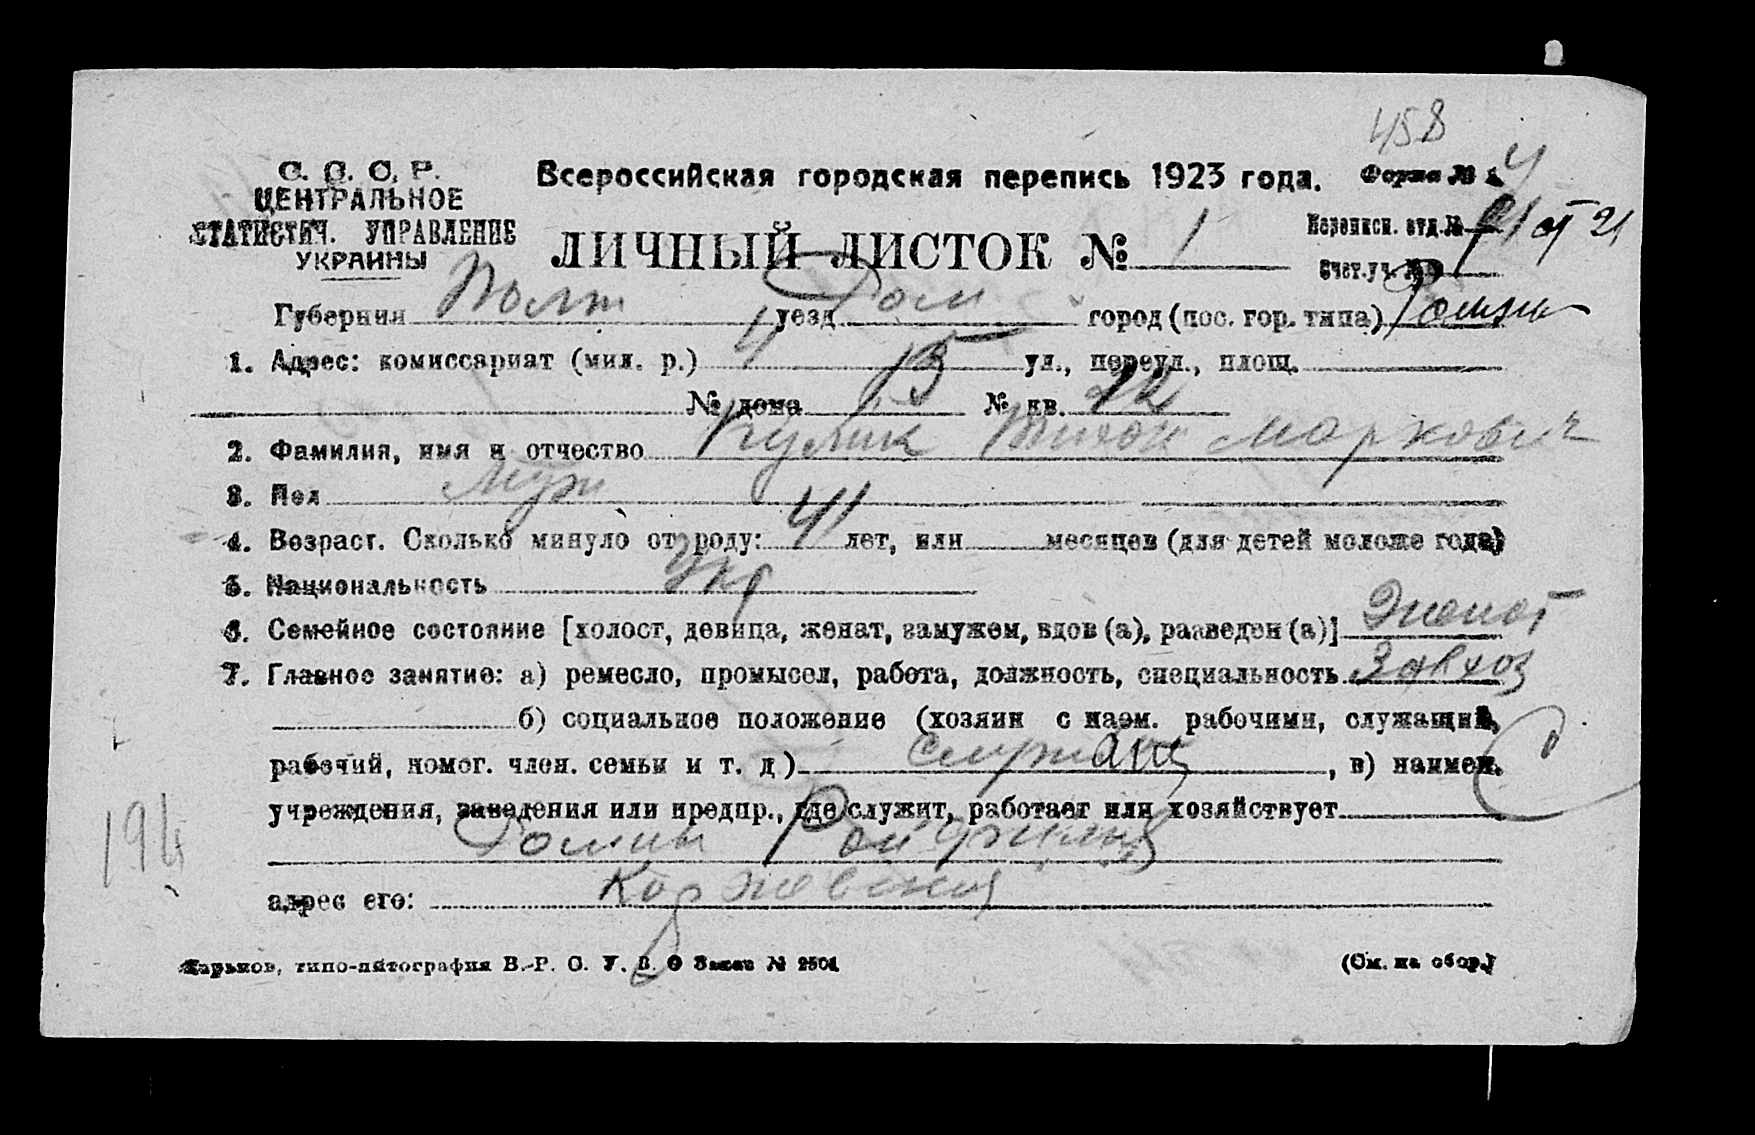 458
С. С. С. Р. Всероссийская городская перепись 1923 года. Форма № 4
ЦЕНТРАЛЬНОЕ
СТАТИСТИЧ. УПРАВЛЕНИЕ
УКРАИНЫ
ЛИЧНЫЙ ЛИСТОК № 1
Переписн. отд. № 21
Счет. уч. №
Губерния Полт уезд Ром город (пос. гор. типа) Ромны
1. Адрес: комиссариат (мил. р.) 4 ул., переул., площ.
№ дома 15 № кв. 12
2. Фамилия, имя и отчество Кулик Тихон Маркович
3. Пол Муж
4. Возраст. Сколько минуло от роду: 41 лет, или месяцев (для детей моложе года)
5. Национальность Укр
6. Семейное состояние [холост, девица, женат, замужем, вдов (а), разведен (а)] Женат
7. Главное занятие: а) ремесло, промысел, работа, должность, специальность Завхоз
б) социальное положение (хозяин с наем. рабочими, служащий,
рабочий, помог. член. семьи и т. д) служащ, в) наимен.
учреждения, заведения или предпр., где служит, работает или хозяйствует
Ромны
194
адрес его: Коржовская
Харьков, типо-литография В.-Р. С. У. В. О Заказ № 2504 (См. на обор.)